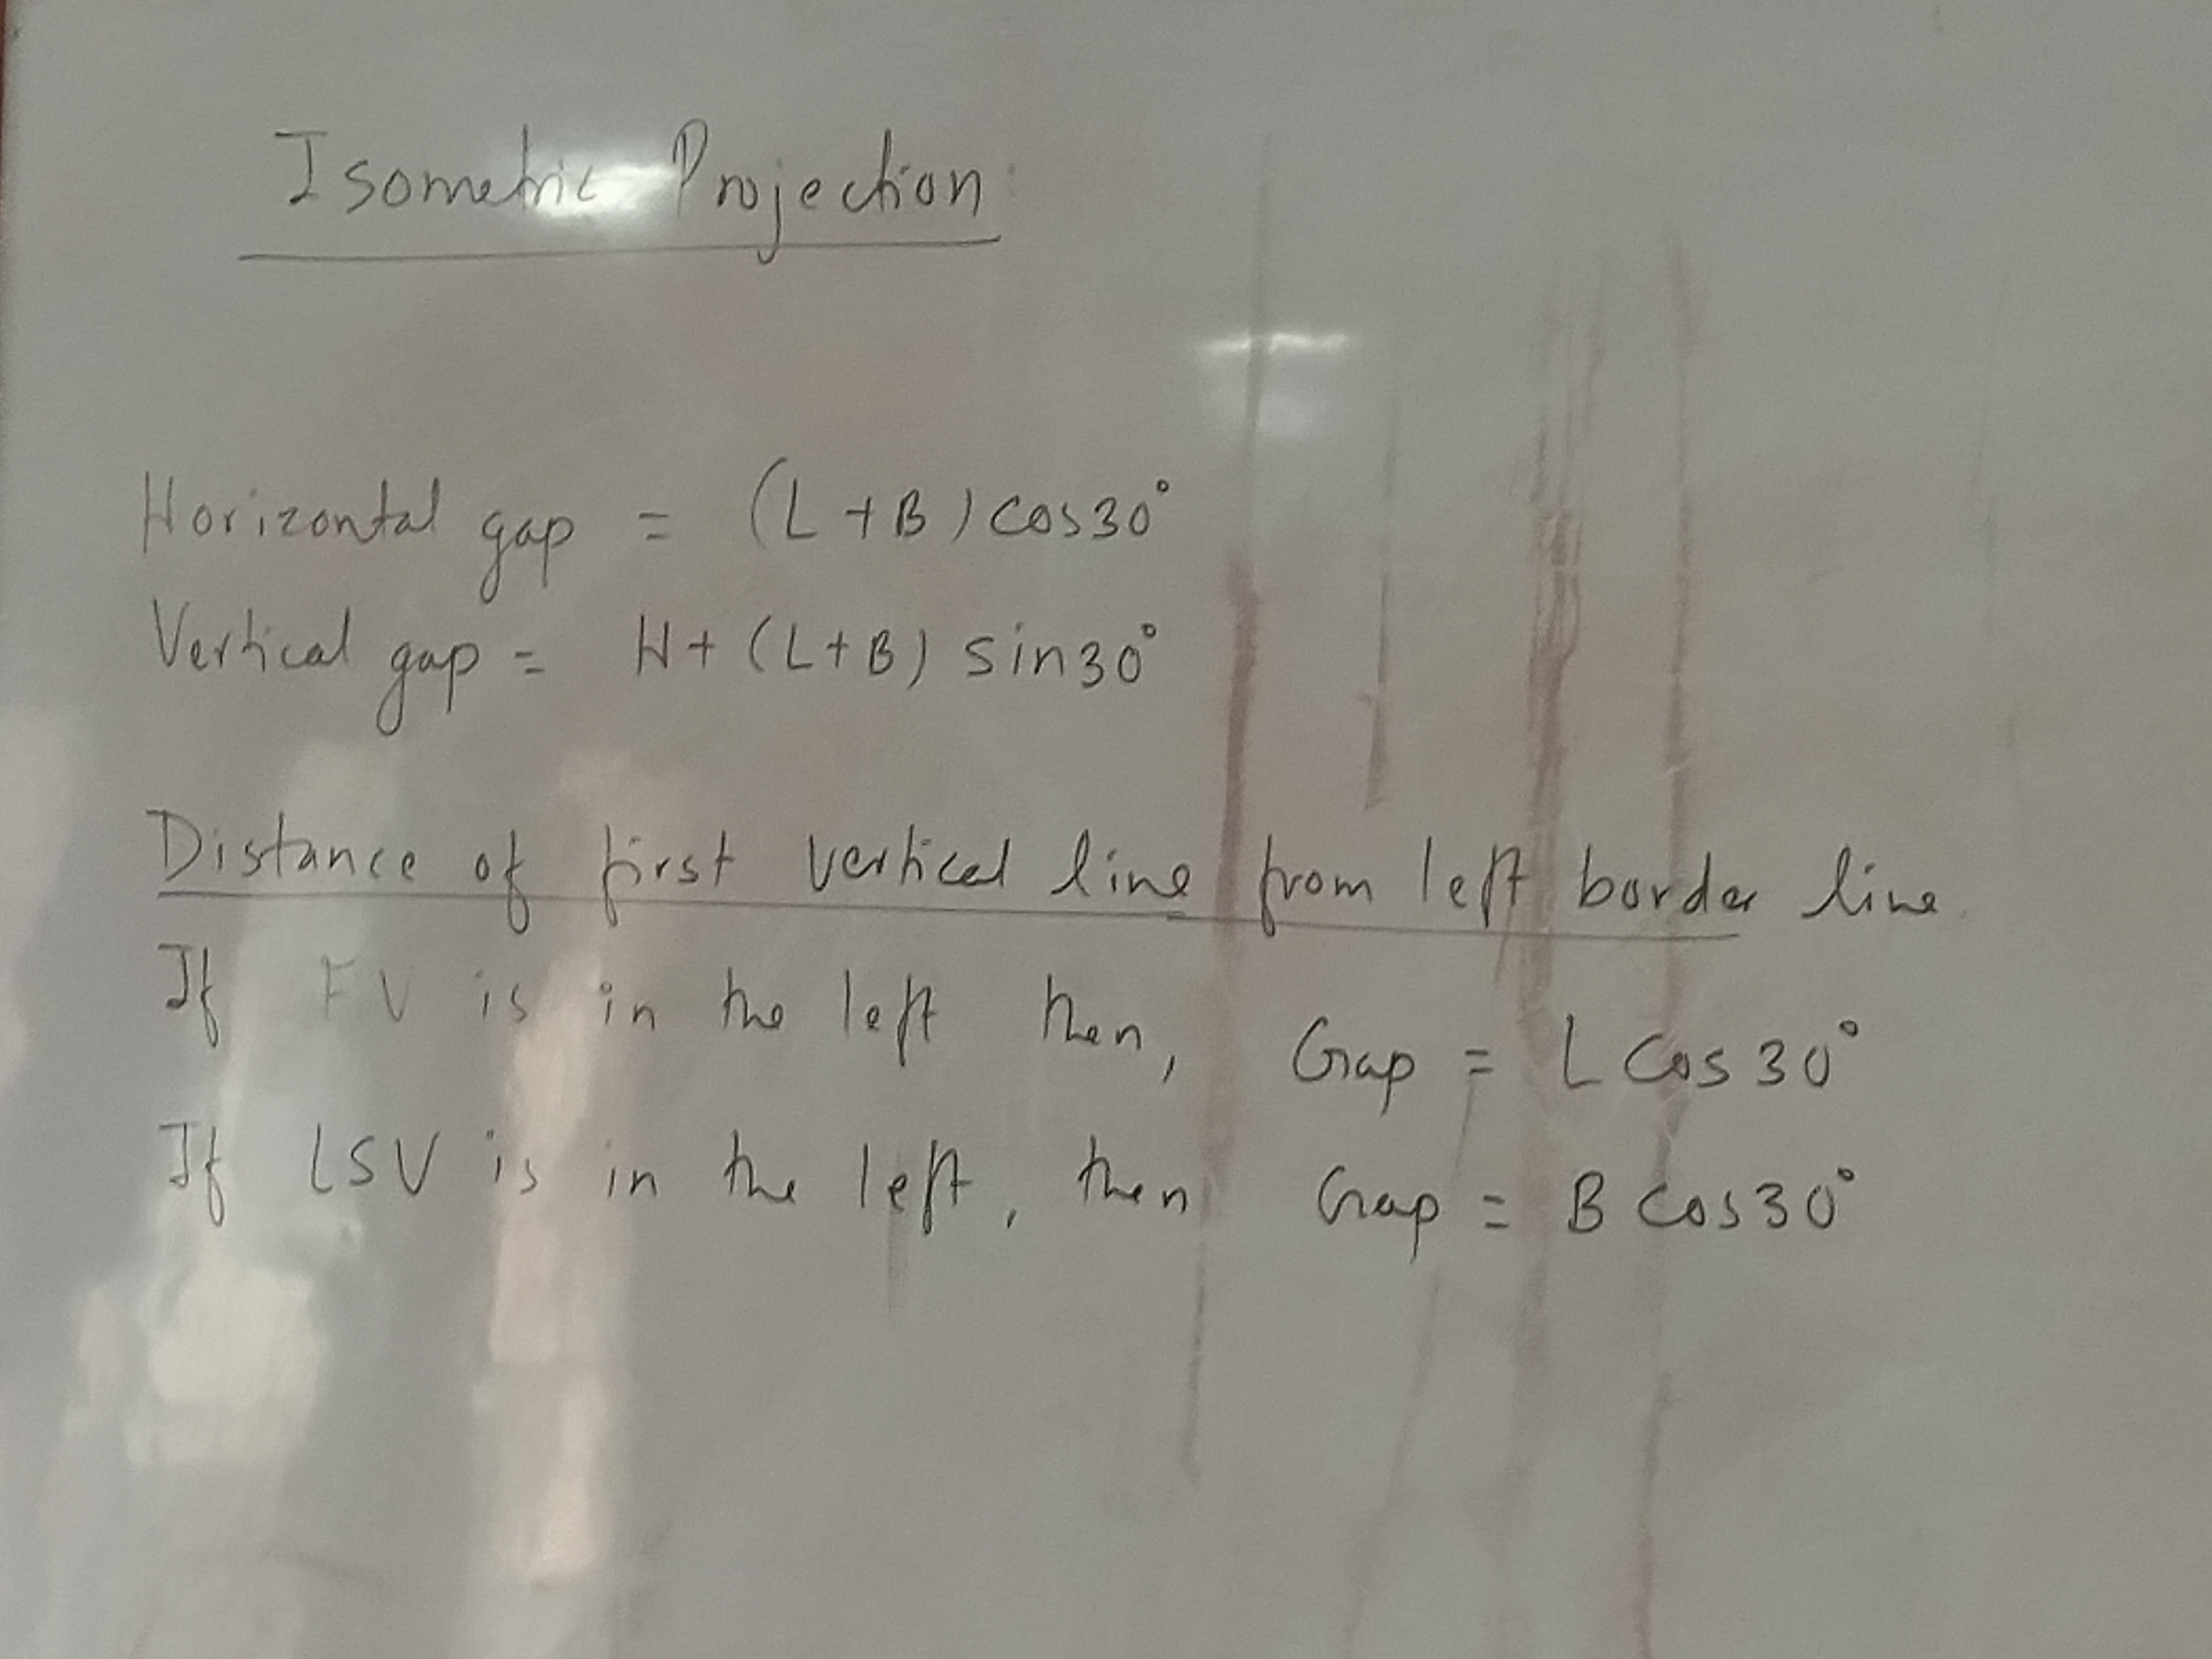 Isometric Projection:
Horizontal gap = (L+B) cos30°
Vertical gap = H+ (L+B) sin30°
Distance of first vertical line from left border line.
If FV is in the left then, Gap = L Cos 30°
If LSV is in the left, then Gap = B Cos30°